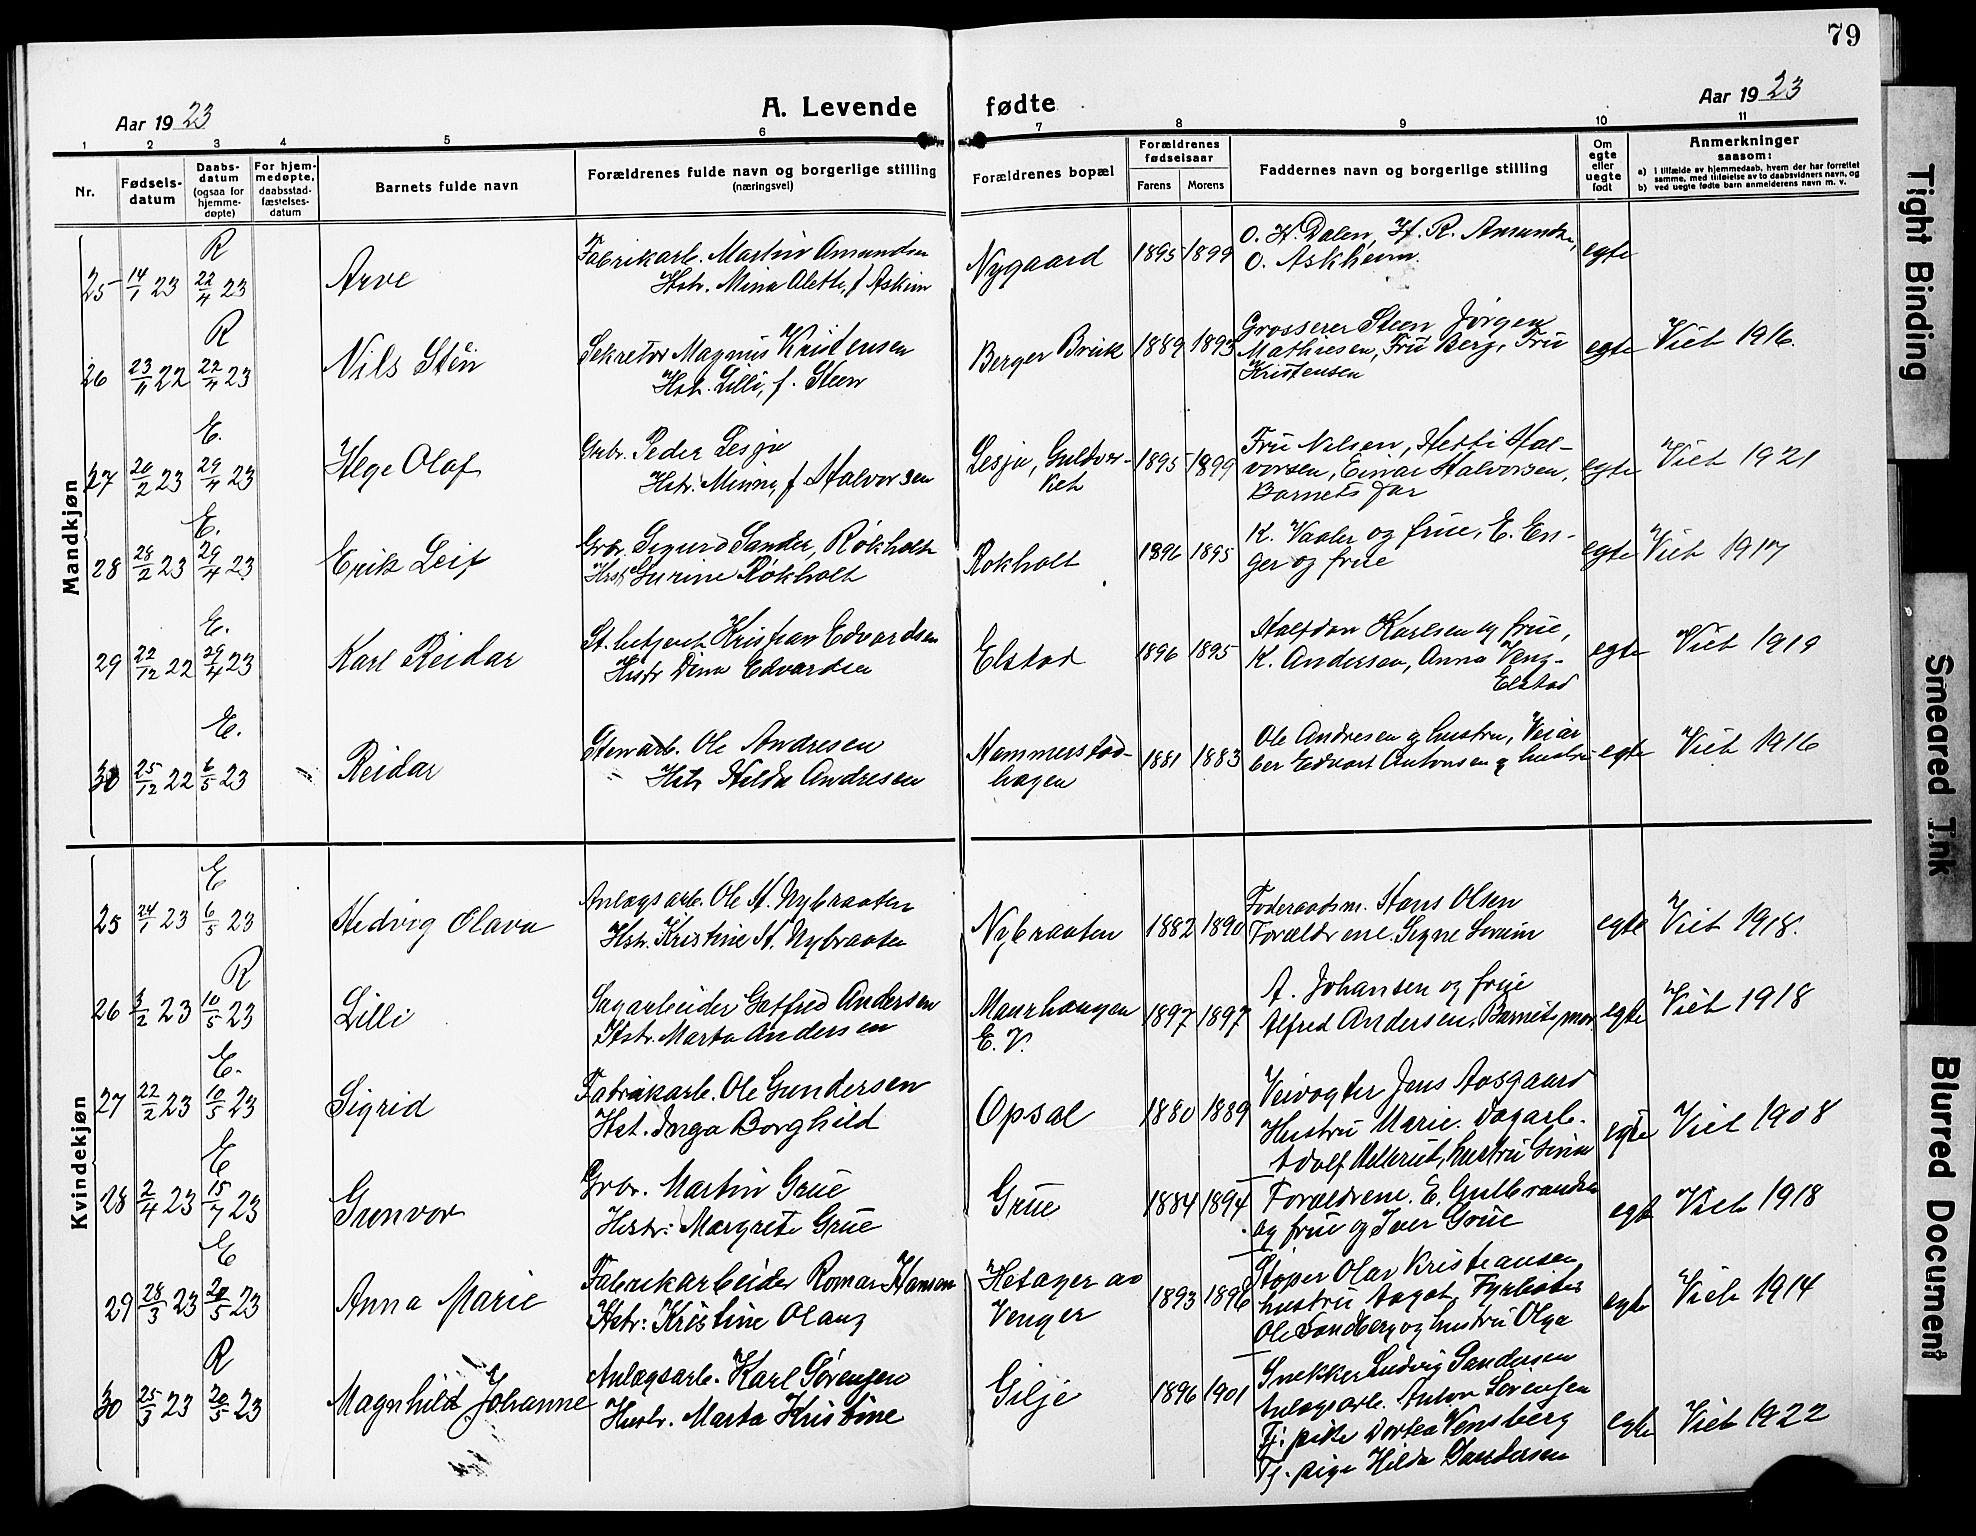 79
Aar 1923
A. Levende fødte
Aar 1923
1 2 3 4 5 6 7 8 9 10 11
Nr.
Fødsels-
datum
Daabs-
datum
(ogsaa for
hjemme-
døpte)
For hjem-
medøpte,
daabsstad-
fæstelses-
datum
Barnets fulde navn
Forældrenes fulde navn og borgerlige stilling
(næringsvei)
Forældrenes bopæl
Forældrenes
fødselsaar
Farens Morens
Faddernes navn og borgerlige stilling
Om
egte
eller
uegte
født
Anmerkninger
saasom:
a) i tilfælde av hjemmedaab, hvem der har forrettet
samme, med tilføielse av to daabsvidners navn, og
b) ved uegte fødte barn anmelderens navn m. v.
Mandkjøn
R
25 14/1 23 22/4 23 Arve
Fabrikarb. Martin Amundsen
Hstr. Mina Alette, f Askim
Nygaard 1895 1899
O. H. Dalen, Hf. R. Amundsen,
O. Askheim.
egte
R
26 23/11 22 22/4 23 Nils Stén
Sekretær Magnus Kristensen
Hstr. Lilli, f. Steen
Berger Bruk 1889 1893
Grosserer Steen, Jørgen
Mathiesen, Fru Berg, Fru
Kristensen
egte Viet 1916.
E.
27 20/2 23 29/4 23 Helge Olaf
Grbr. Peder Lesja
Hstr. Minna, f Halvorsen
Lesja, Gulver-
ket
1895 1899
Fru Nilsen, Hetti Hal-
vorsen, Einar Halvorsen,
Barnets far
egte Viet 1921
E.
28 28/2 23 29/4 23 Erik Leif
Grbr. Sigurd Sander, Røkholt
Hstr Gurine Røkholt
Rokholt 1896 1895
K. Vaaler og frue, E. En-
ger og frue
egte Viet 1917
E.
29 22/12 22 29/4 23 Karl Reidar
St. betjent Kristian Edvardsen
Hstr Dina Edvardsen
Elstad 1896 1895
Halfdan Karlsen og frue,
K. Andersen, Anna Veng-
Elstad
egte Viet 1919
E.
30 25/12 22 6/5 23 Reidar
Stenarb. Ole Andresen
Hstr Hilda Andresen
Hammerstad-
hagen
1881 1883
Ole Andresen og hustru, Veiar
ber Edvart Antonsen og hustru
egte Viet 1916
Kvindekjøn
E
25 24/1 23 6/5 23 Hedvig Olava
Anlægsarb. Ole H. Nybraaten
Hstr. Kristine H. Nybraaten
Nybraaten 1882 1890
Føderaadsm. Hans Olsen
Forældrene. Signe
egte Viet 1918.
R
26 3/2 23 10/5 23 Lilli
Sagarbeider Gotfred Andersen
Hstr. Marta Andersen
Maurhaugen
E. V.
1897 1897
A. Johansen og frue
Alfred Andersen, Barnets mor
egte Viet 1918
E.
27 22/2 23 10/5 23 Sigrid
Fabrikarb. Ole Gundersen
Hst. Inga Borghild
Opsal 1880 1889
Veivogter Jens Aasgaard
Hustru Marie. Dagarb.
Adolf Mellerut, hustru
egte Viet 1908
E
28 2/4 23 15/7 23 Gunvor
Grbr. Martin Grue
Hustr: Margrete Grue
Grue 1884 1894
Forældrene. E. Gulbrandsen
og frue og Iver Grue
egte Viet 1918
E
29 28/3 23 20/5 23 Anna Marie
Fabrikarbeider Romar Hansen
Hstr: Kristine Olaug
Hetager av
Venger
1893 1896
Støper Olav Kristiansen
hustru Aagot, Fyrbøter
Ole Sandberg og hustru Olga
egte Viet 1914
R
30 25/3 23 20/5 23 Magnhild Johanne
Anlægsarb. Karl Sørensen
Hustr. Marta Kristine
Gilje 1896 1901
Snekker Ludvig Sandersen
Anlægsarb. Anton Sørensen
Tj. pike Dortea Vensberg
Tj. pige Hilda
egte Viet 1922
Tight Binding
Smeared Ink
Blurred Document